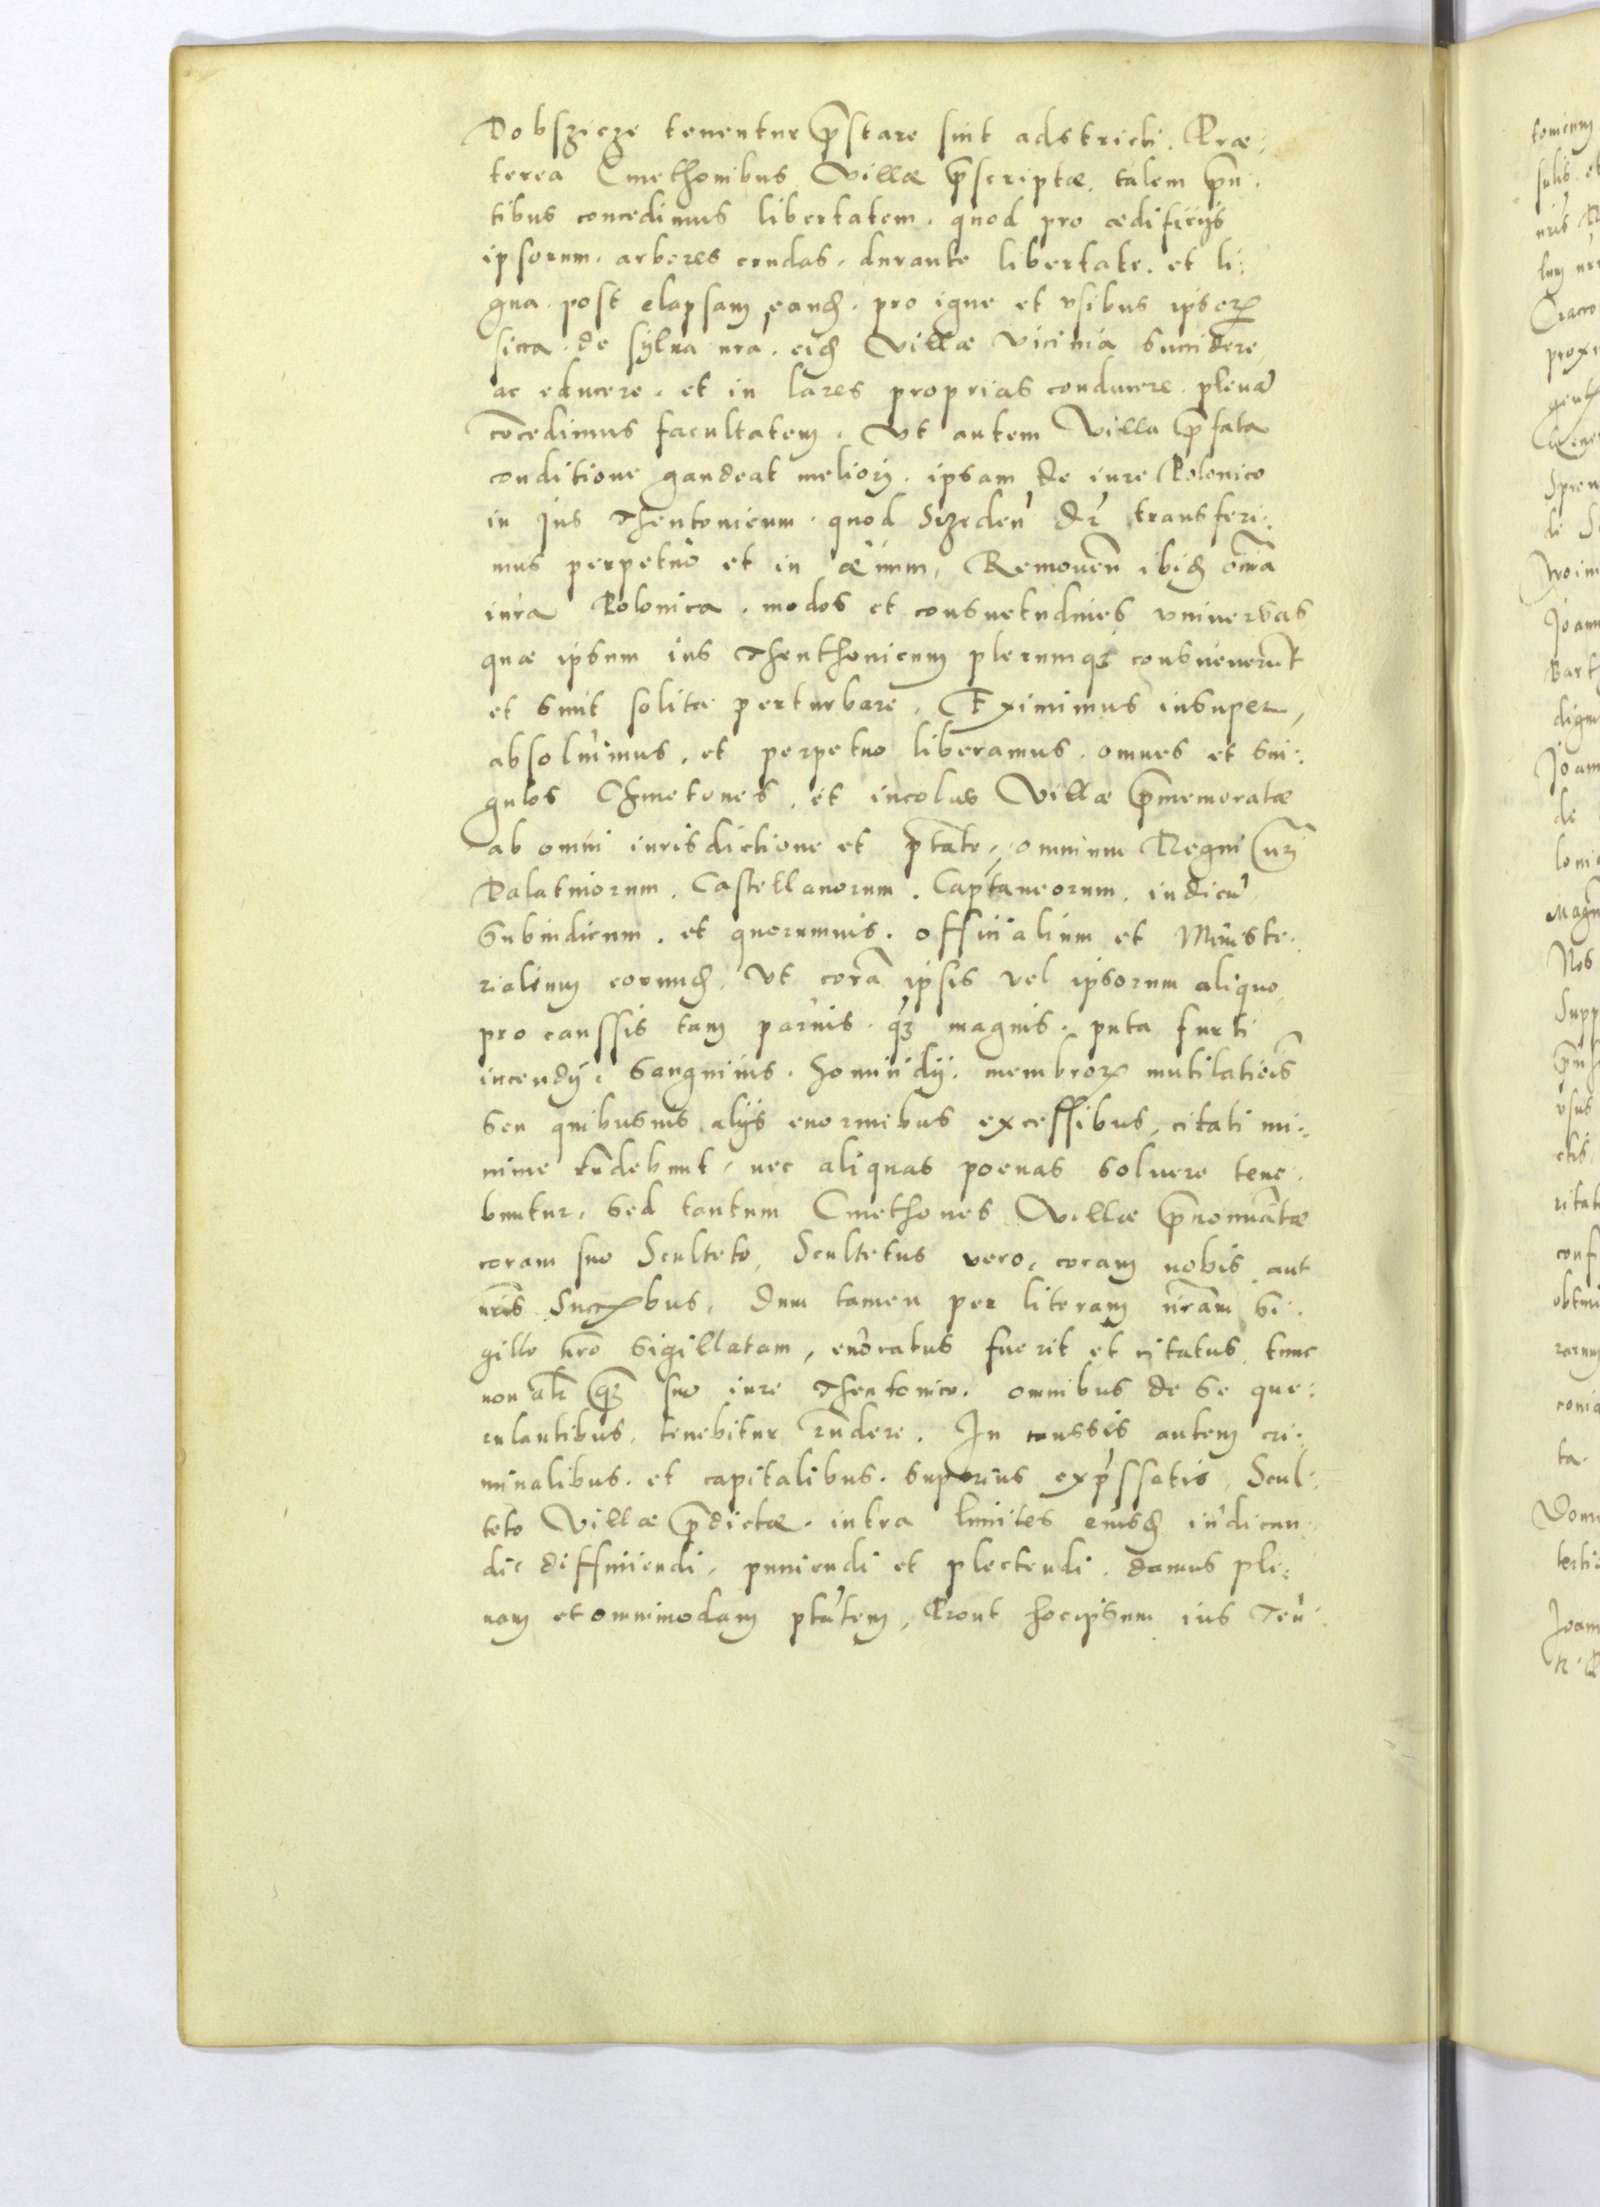 Dobszicze tenentur p̄stare sint adstricti. Præ:
terea Cmethonibus Villæ p̄scriptæ, talem p̄n:
tibus concedimus libertatem. quod pro ædificijs
ipsorum. arbores crudas. durante libertate. et li:
gna. post elapsam eand̄. pro igne et vsibus ipsorꝝ
sicca. de sylua nra. eid̄ Villæ vicinia succidere,
ac educere. et in lares proprias conducere. plenā
cōcedimus facultatem. Vt autem Villa p̄fata
conditione gaudeat meliorj. ipsam de iure Polonico
in Jus Theutonicum. quod Szreden̄ dr̄ transferi:
mus perpetuo et in æuum, Remouen̄ ibid̄ om̄ia
iura Polonica. modos et consuetudines vniuersas
quæ ipsum ius Theuthonicum plerumqꝫ consueuerūt
et sunt solitæ perturbare, Eximimus insuper,
absoluimus, et perpetuo liberamus. omnes et sin:
gulos Chmetones, et incolas Villæ p̄memoratæ
ab omni iurisdictione et ptāte, omnium Regni nr̄i
Palatinorum. Castellanorum. Capitaneorum. iudicū
Subiudicum. et quorumuis. officialium et Ministe:
rialium eorund̄, Vt corā ipsis vel ipsorum aliquo,
pro caussis tam paruis. qꝫ magnis. puta furti
incendij. sanguinis. homicidij. membrorꝝ mutilatiōis
seu quibusuis alijs enormibus excessibus, citati mi:
nime rn̄debunt, nec aliquas poenas soluere tene:
buntur, Sed tantum Cmethones Villæ p̄nominātæ
coram suo Sculteto, Scultetus vero, coram nobis aut
nr̄is Succꝝbus, Dum tamen per literam nr̄am si:
gillo nr̄o sigillatam, euocatus fuerit et citatus, tunc
non alr̄ qꝫ suo iure Theutonico. omnibus de se que:
rulantibus, tenebitur rn̄dere. In caussis autem cri:
minalibus. et capitalibus. superius exp̄ssatis, Scul:
teto Villæ p̄dictæ. intra limites eiusd̄ iudican:
di, diffiniendi, puniendi et plectendi. damus ple:
nam et omnimodam ptātem, Prout hocipsum ius Teu: